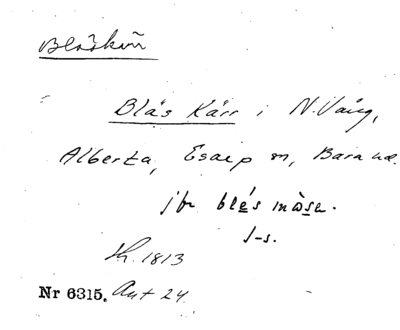 Blåskärr
Blås Kärr i N. Vång,
Alberta, Esarp m, Bara hd.
jfr blés mòse.
1-s.
Sk. 1813
Nr 6315. Ant 24.